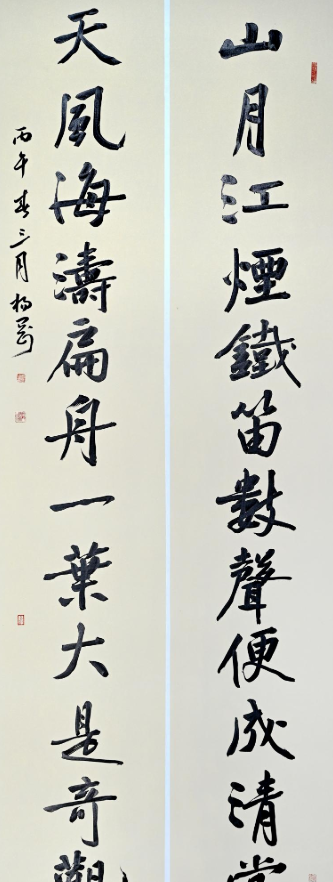 山月江煙鐵笛數聲便成清賞
天風海濤扁舟一葉大是奇觀
丙午春三月楊剛